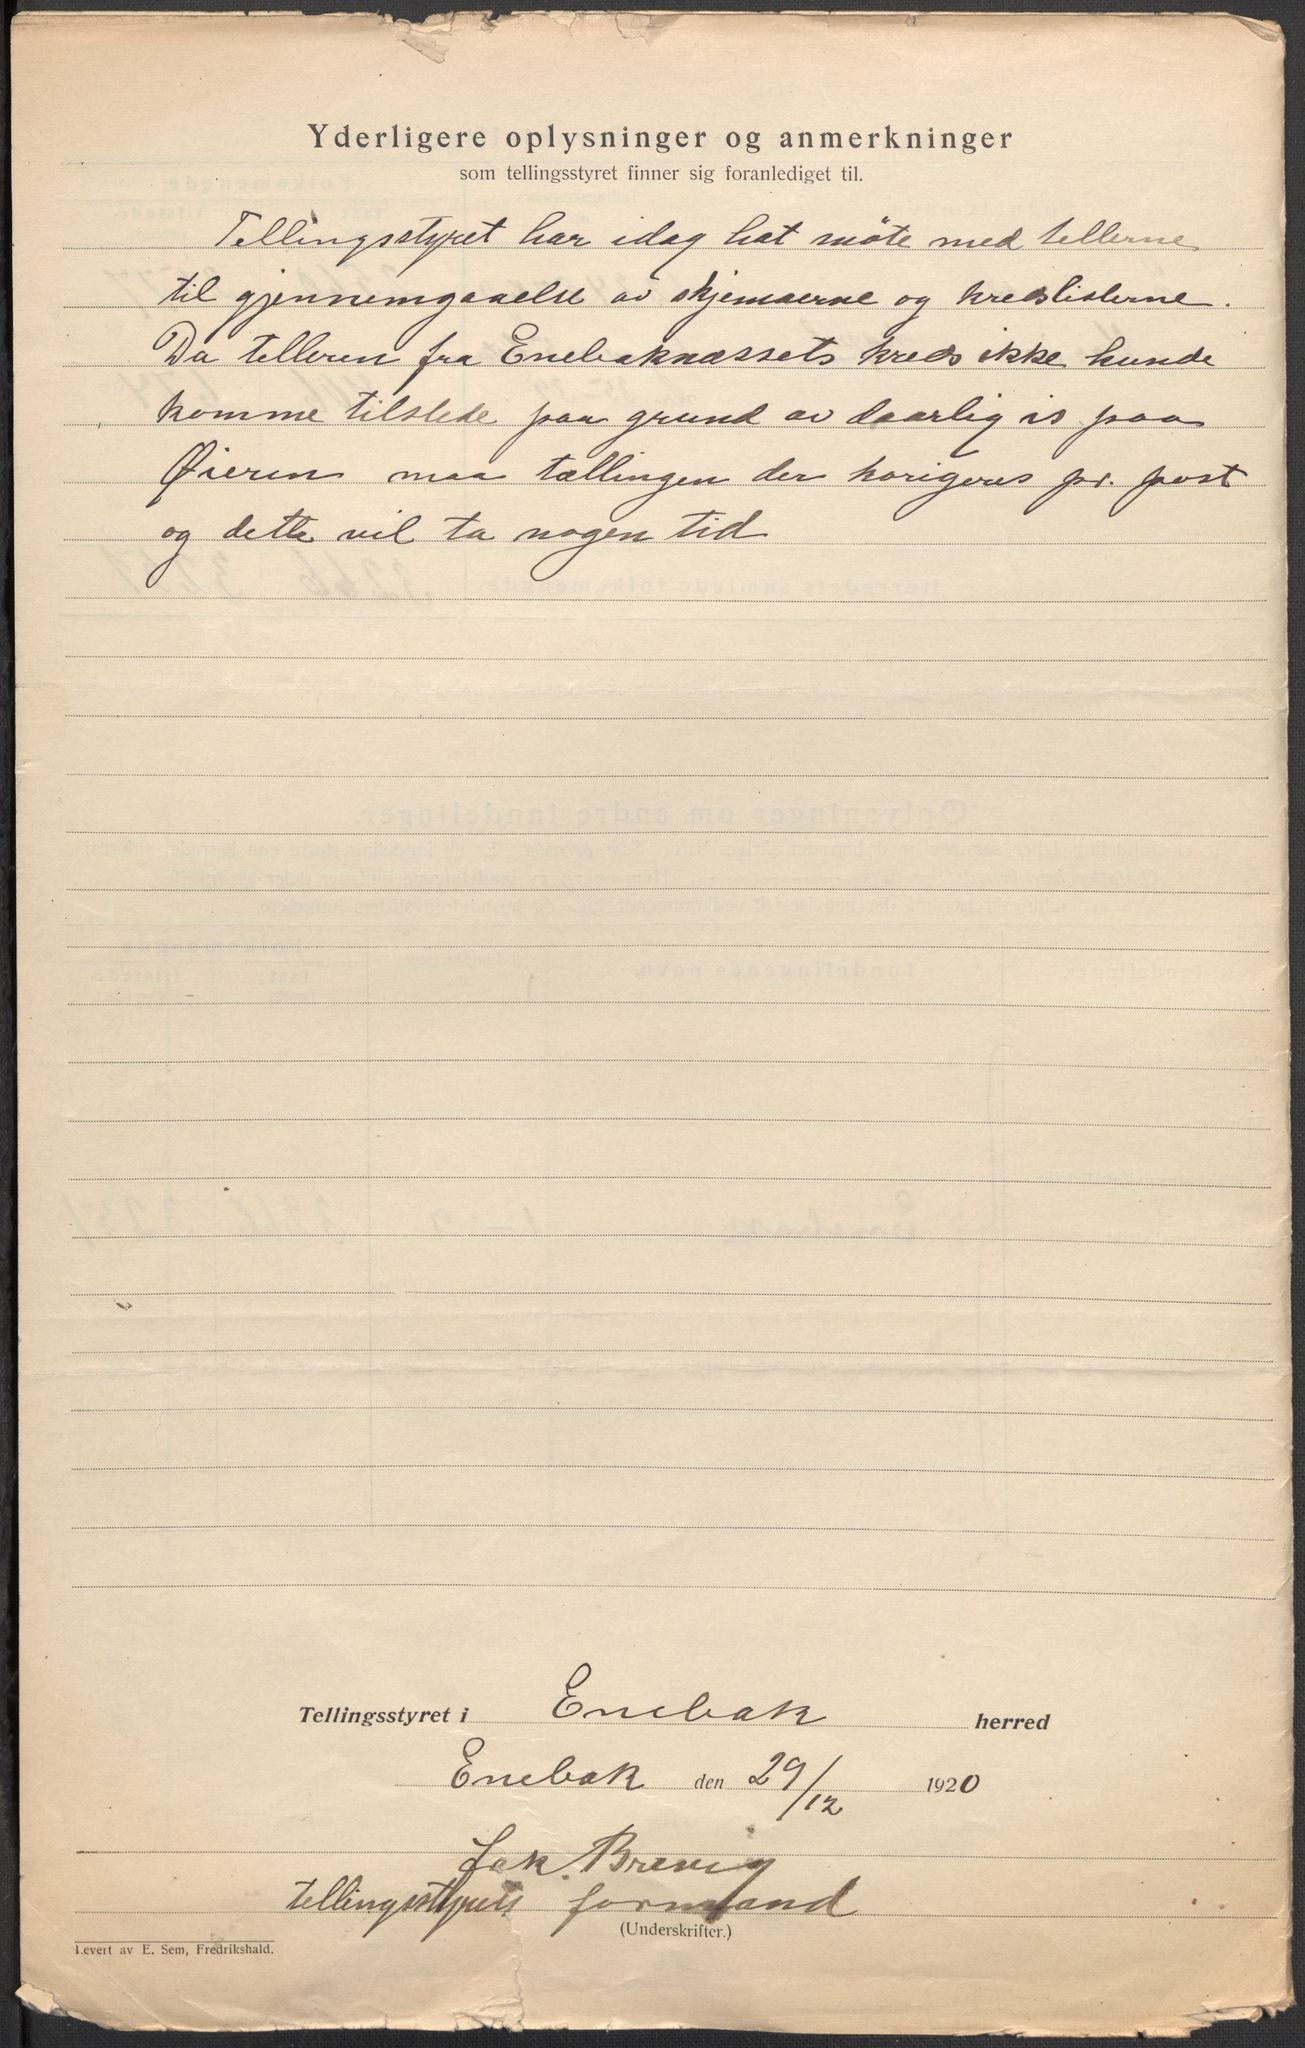 Yderligere oplysninger og anmerkninger
som tellingsstyret finner sig foranlediget til.
Tellingsstyret har idag hat møte med tellerne
til gjennemgaaelse av skjemaerne og kredslisterne.
Da telleren fra Enebaknæssets kreds ikke kunde
komme tilstede paa grund av daarlig is paa
Øieren maa tællingen der korigeres pr. post
og dette vil ta nogen tid
Tellingsstyret i Enebak herred
Enebak den 29/12 1920
Jak. Brevig
tellingsstyrets formand
(Underskrifter.)
Levert av E. Sem, Fredrikshald.